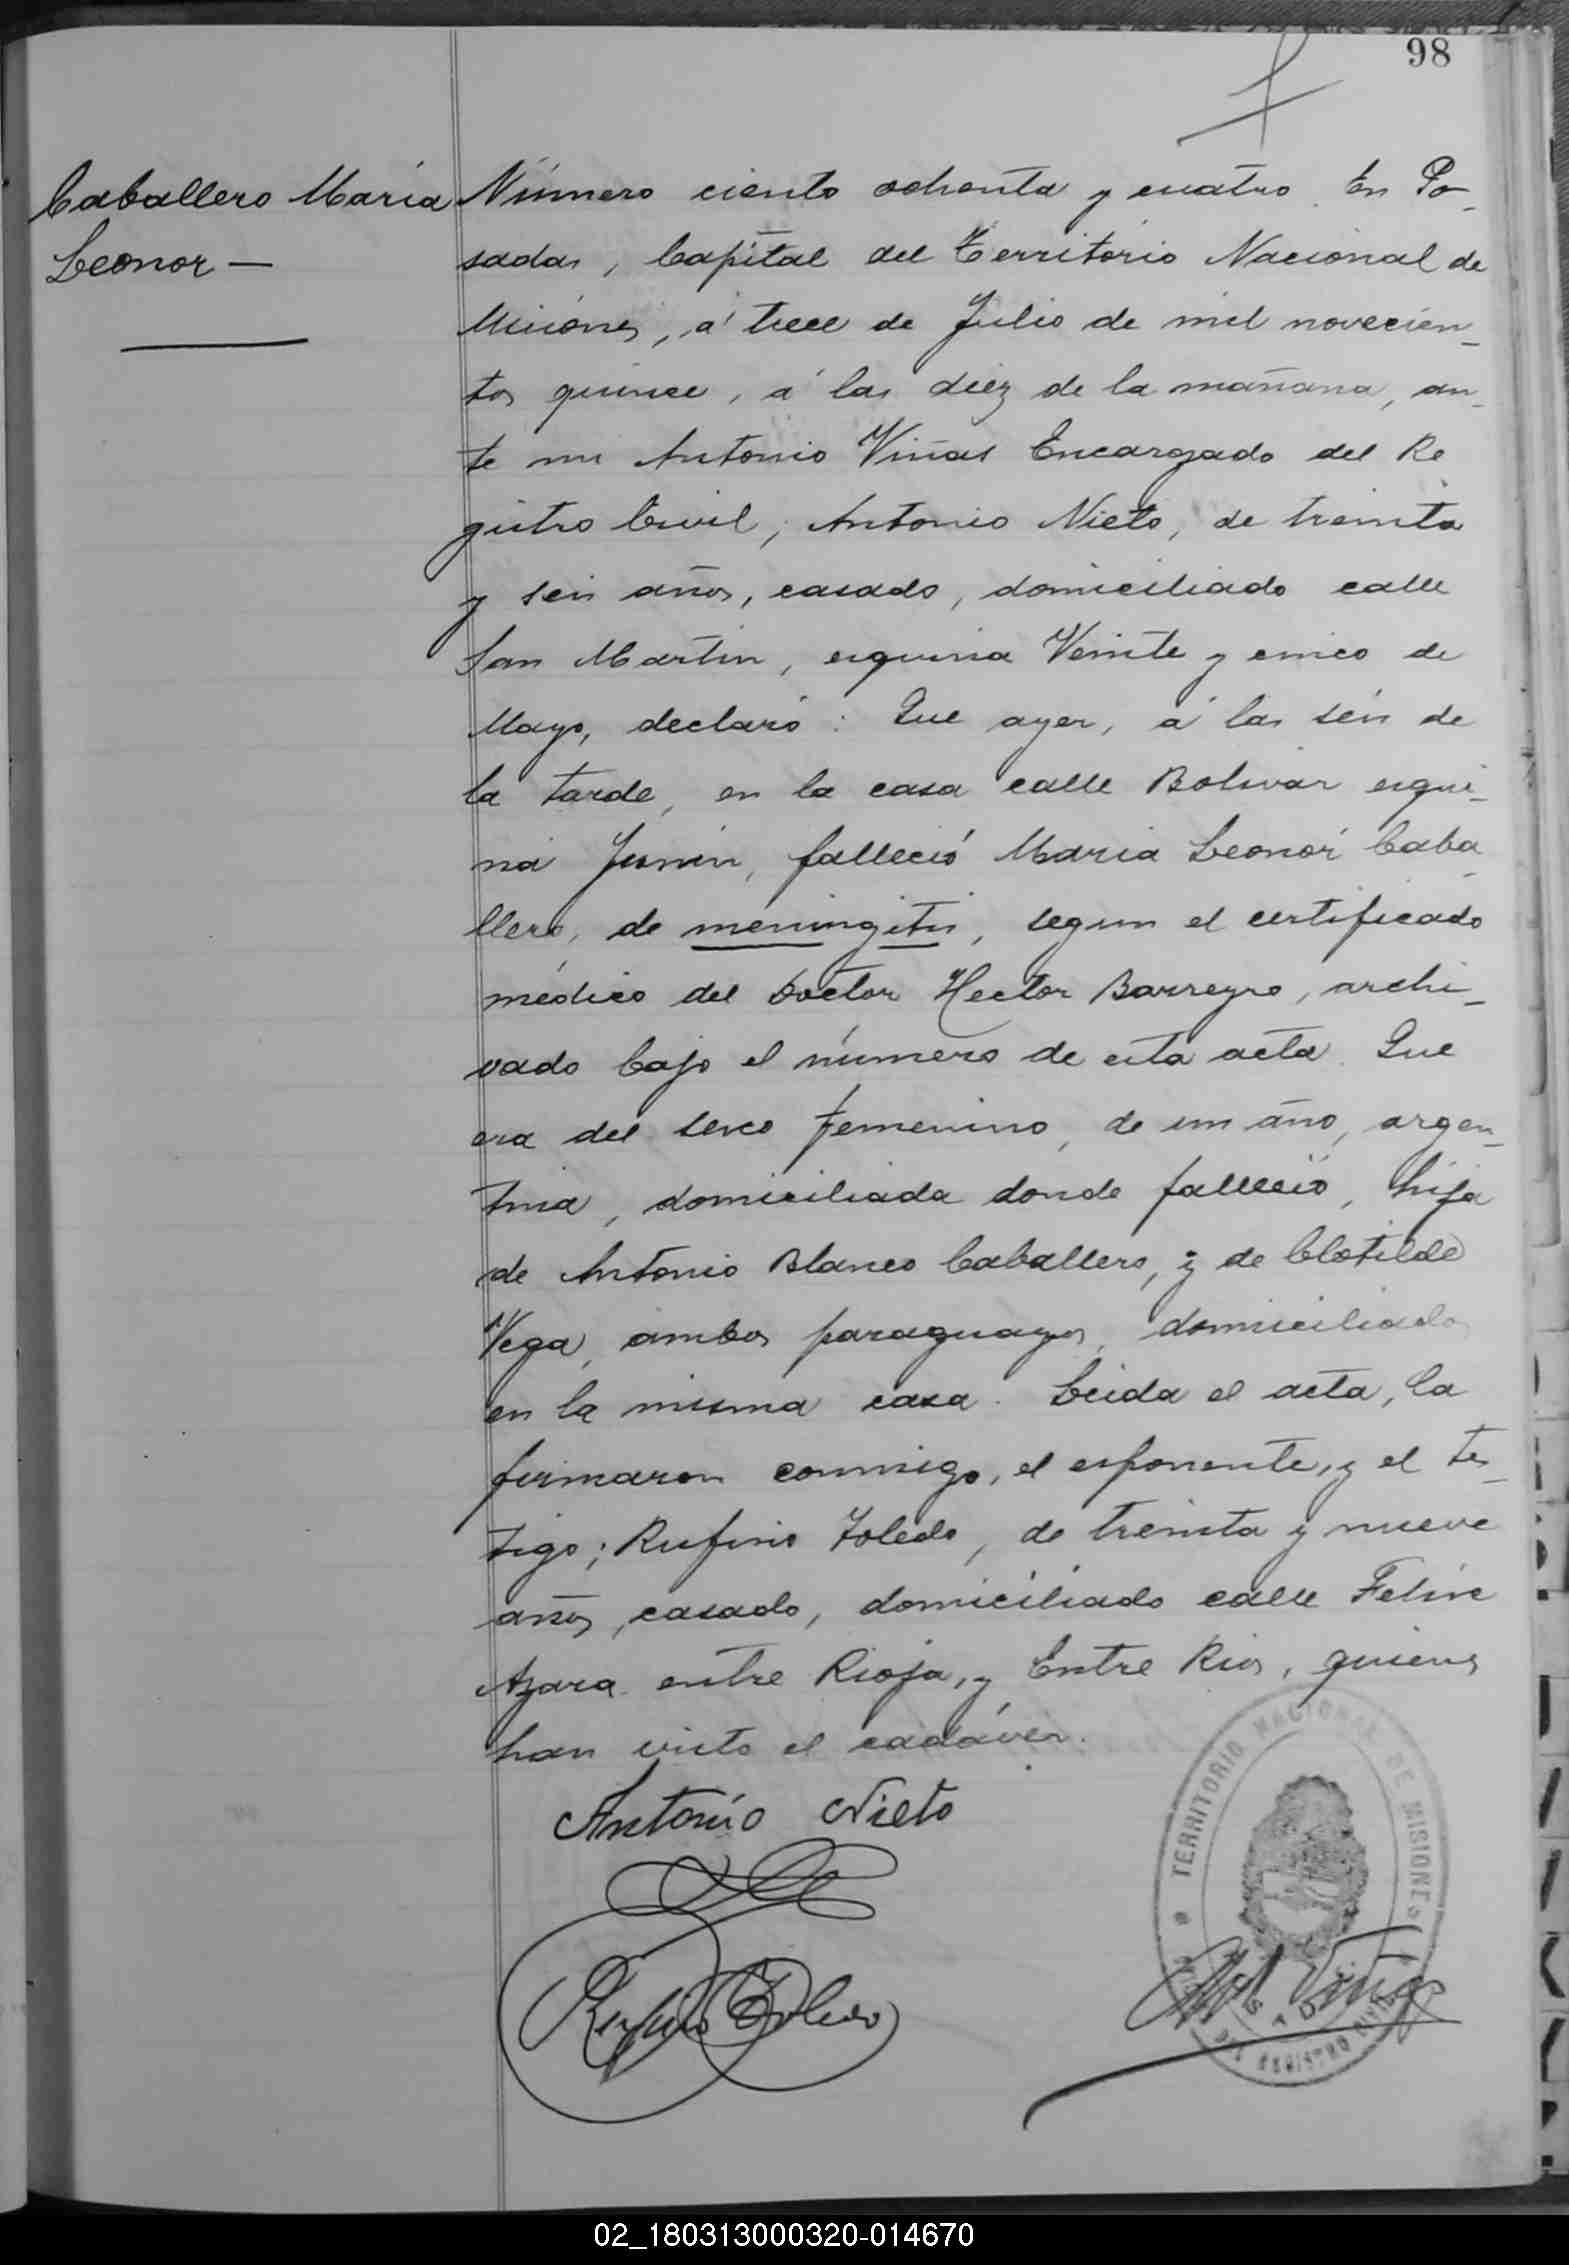 98
Caballero María
Leonor —
Número ciento ochenta y cuatro. En Po-
sadas, Capital del Territorio Nacional de
Misiones, á trece de Julio de mil novecien-
tos quince, á las diez de la mañana, an-
te mi Antonio Viñas Encargado del Re
gistro Civil; Antonio Nieto, de treinta
y seis años, casado, domiciliado calle
San Martin, esquina Veinte y cinco de
Mayo, declaró: Que ayer, á las seis de
la tarde, en la casa calle Bolivar esqui-
na Junin, falleció Maria Leonor Caba
llero, de meningitis, segun el certificado
médico del Doctor Hector Barreyro, archi-
vado bajo el número de esta acta. Que
era del sexo femenino, de un año, argen-
tina, domiciliada donde falleció, hija
de Antonio Blanco Caballero, y de Clotilde
Vega, ambos paraguayos, domiciliados
en la misma casa. Leida el acta, la
firmaron conmigo, el esponente, y el tes-
tigo; Rufino Toledo, de treinta y nueve
años, casado, domiciliado calle Felix
Azara entre Rioja, y Entre Rios, quienes
han visto el cadáver.
Antonio Nieto
Rufino Toledo
TERRITORIO NACIONAL DE MISIONES
POSADAS
DEL REGISTRO CIVIL
Viñas
02_180313000320-014670